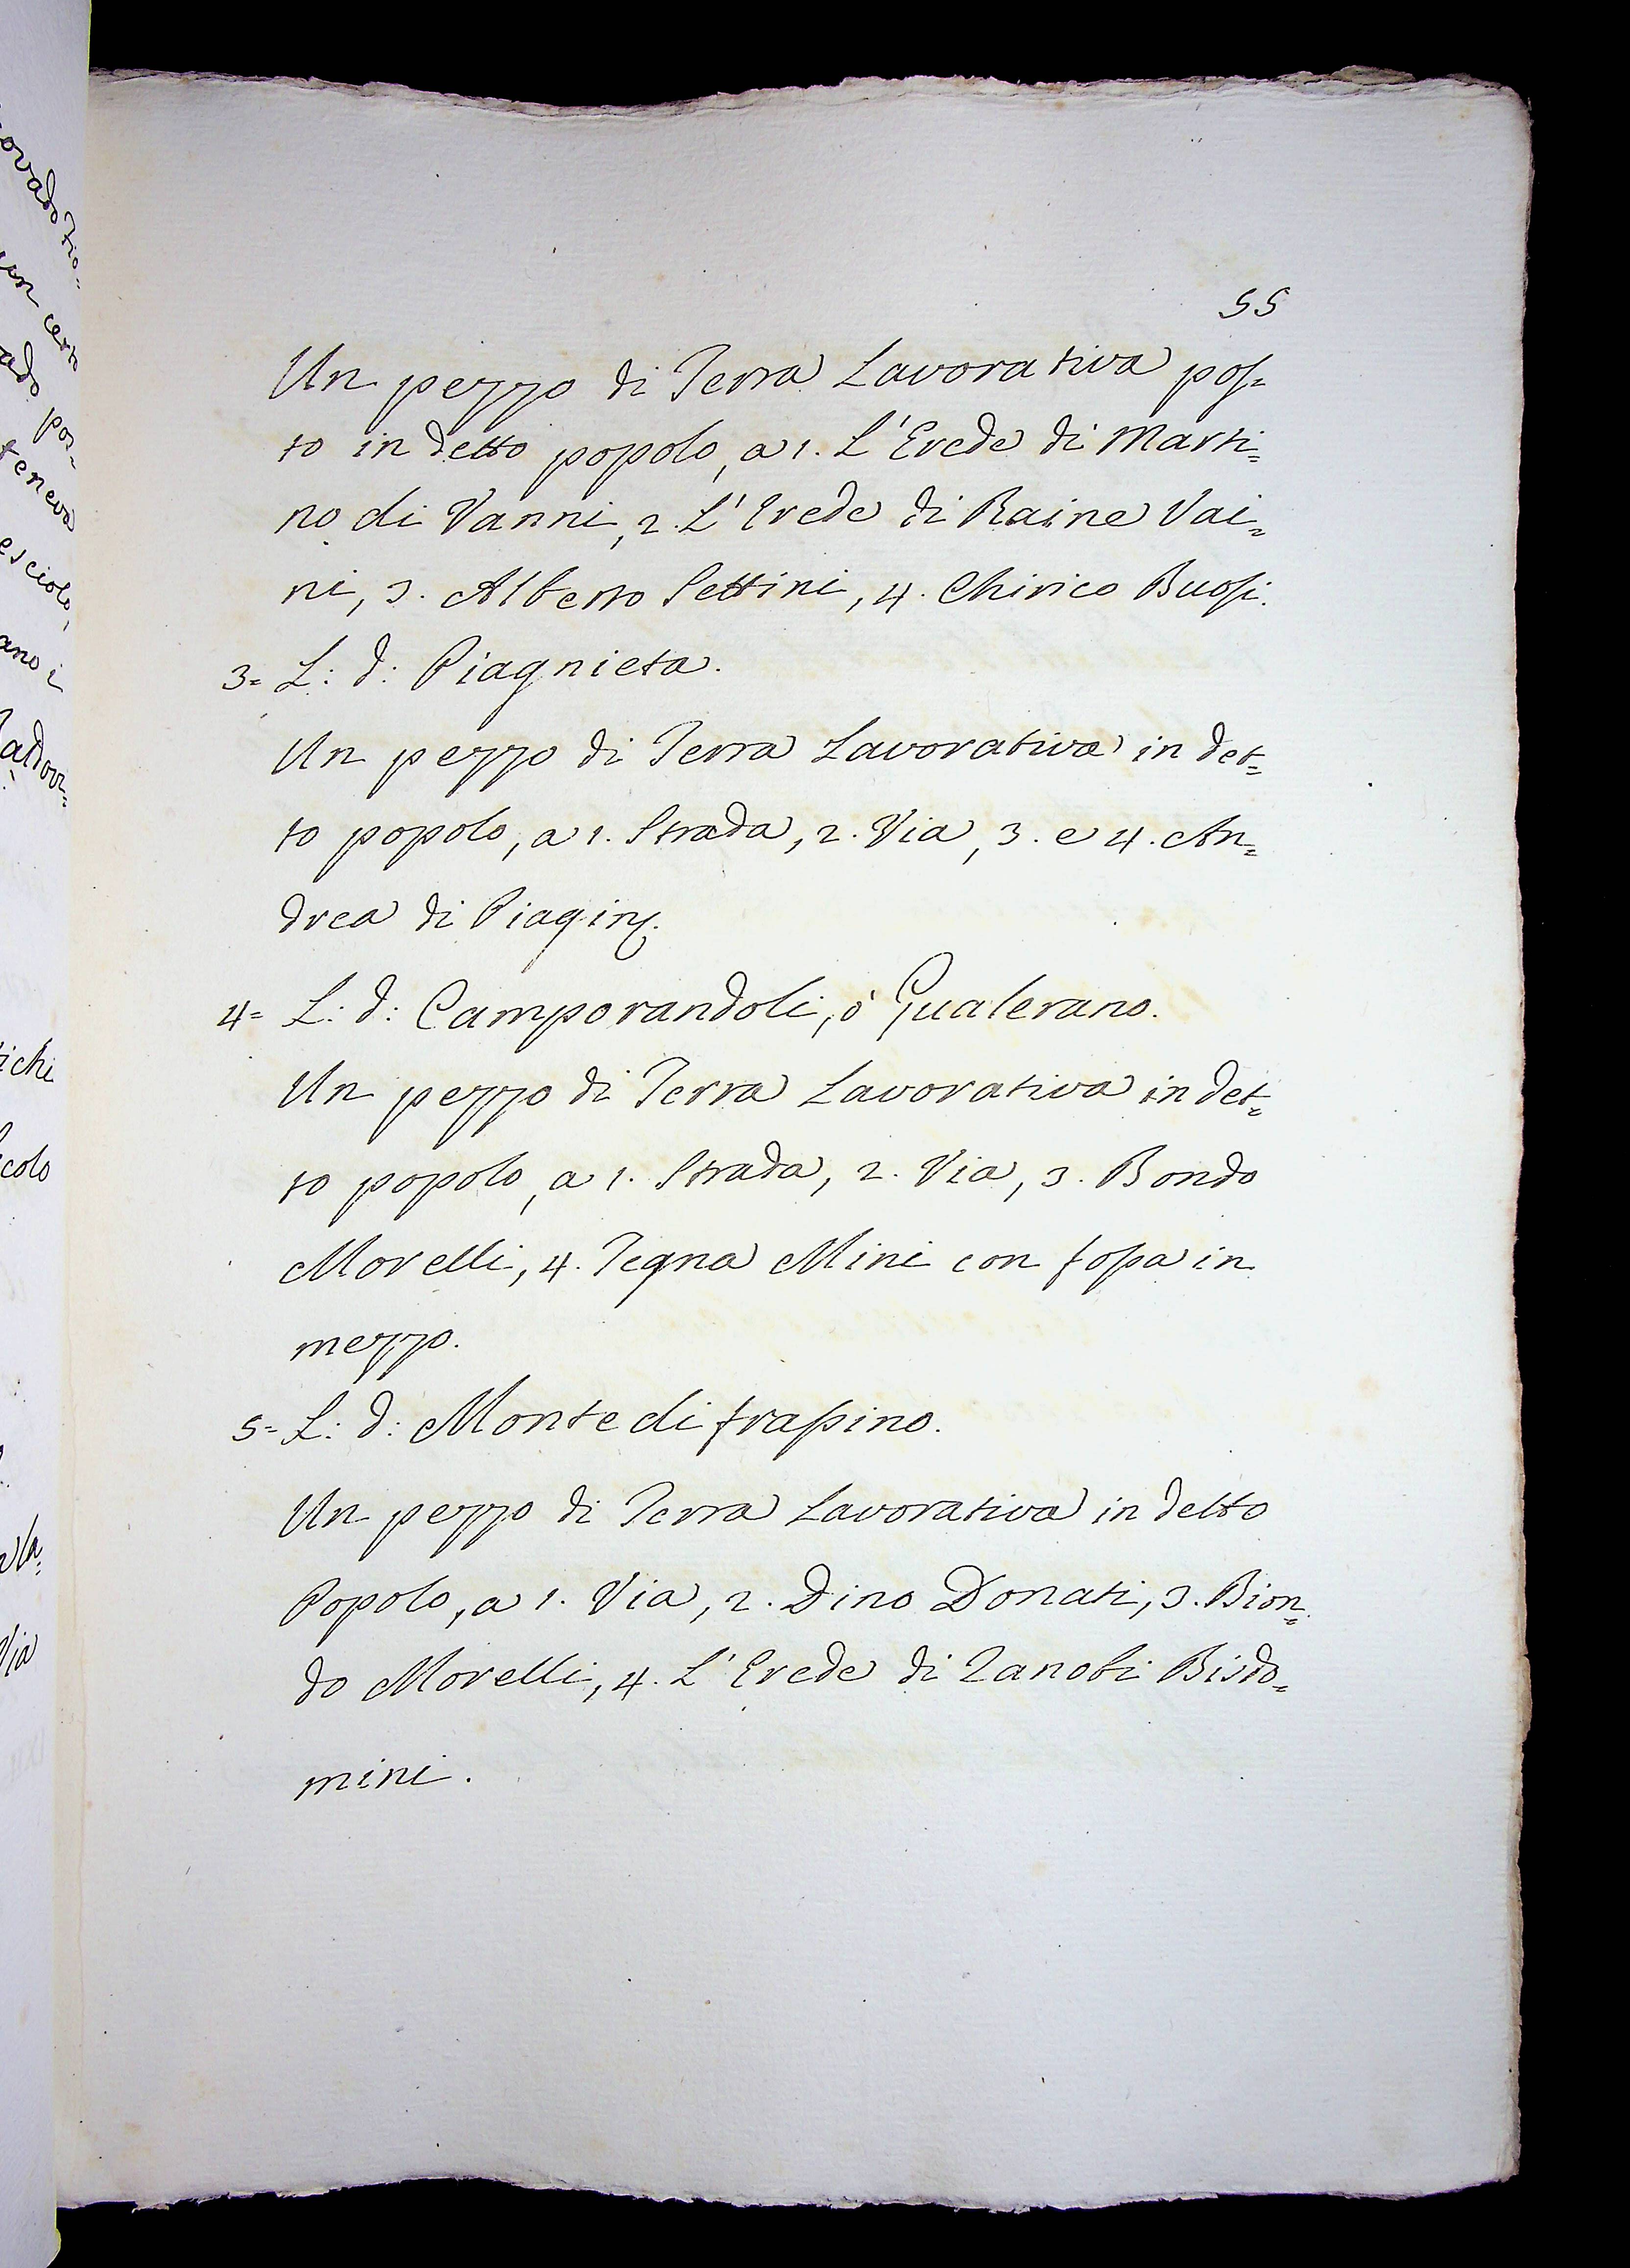 55
Un pezzo di Terra Lavorativa pos=
to in detto popolo, a 1. L'Erede di Marti=
no di Vanni, 2. L'Erede di Raine Vai=
ni, 3. Alberto Settini, 4. Chirico Buosi.
3= L: d: Piagnieta.
Un pezzo di Terra Lavorativa in det=
to popolo, a 1. Strada, 2. Via, 3. e 4. An=
drea di
4= L: d: Camporandoli, ò Gualerano.
Un pezzo di Terra Lavorativa in det=
to popolo, a 1. Strada, 2. Via, 3. Bondo
Morelli, 4. Tegna Mini con fossa in
mezzo.
5= L: d: Monte di frassino.
Un pezzo di Terra Lavorativa in detto
Popolo, a 1. Via, 2. Dino Donati, 3. Bion=
do Morelli, 4. L'Erede di Zanobi Bisdo=
mini.